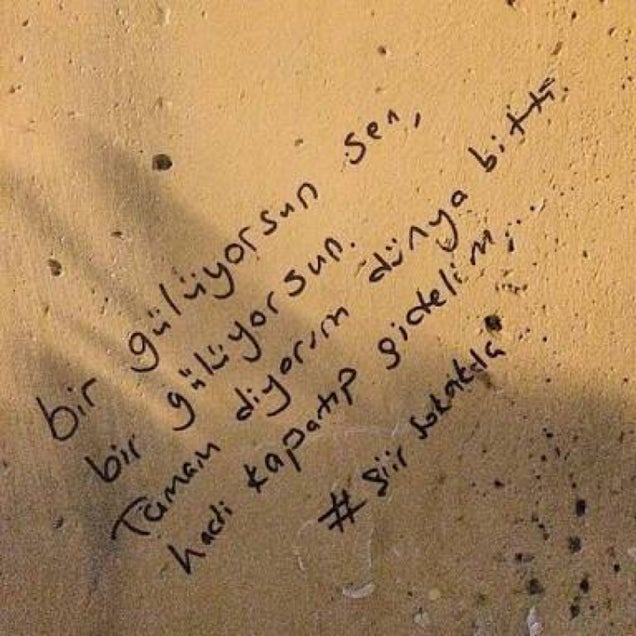 bir gülüyorsun sen,
bir gülüyorsun.
Tamam diyorum dünya bitti.
hadi kapatıp gidelim...
#şiir sokakta